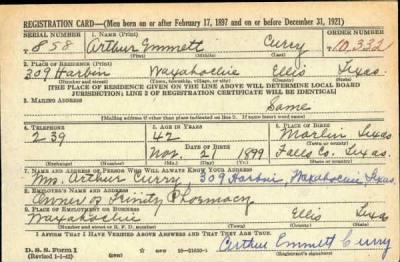 REGISTRATION CARD—(Men born on or after February 17, 1897 and on or before December 31, 1921)
SERIAL NUMBER 1. NAME (Print) ORDER NUMBER
U 858 Arthur Emmett Curry 10,332
(First) (Middle) (Last)
2. PLACE OF RESIDENCE (Print)
309 Harbin Waxahachie Ellis Texas
(Number and street) (Town, township, village, or city) (County) (State)
[THE PLACE OF RESIDENCE GIVEN ON THE LINE ABOVE WILL DETERMINE LOCAL BOARD
JURISDICTION; LINE 2 OF REGISTRATION CERTIFICATE WILL BE IDENTICAL]
3. MAILING ADDRESS
Same
(Mailing address if other than place indicated on line 2. If same insert word same)
4. TELEPHONE 5. AGE IN YEARS 6. PLACE OF BIRTH
239 42 Marlin Texas
DATE OF BIRTH (Town or county)
Nov. 21 1899 Falls Co. Texas.
(Exchange) (Number) (Mo.) (Day) (Yr.) (State or country)
7. NAME AND ADDRESS OF PERSON WHO WILL ALWAYS KNOW YOUR ADDRESS
Mrs. Arthur Curry 309 Harbin, Waxahachie, Texas.
8. EMPLOYER'S NAME AND ADDRESS
Owner of Trinity Pharmacy
9. PLACE OF EMPLOYMENT OR BUSINESS
Waxahachie Ellis Texas
(Number and street or R. F. D. number) (Town) (County) (State)
I AFFIRM THAT I HAVE VERIFIED ABOVE ANSWERS AND THAT THEY ARE TRUE.
D. S. S. Form 1
(Revised 1-1-42) (over)
Arthur Emmett Curry